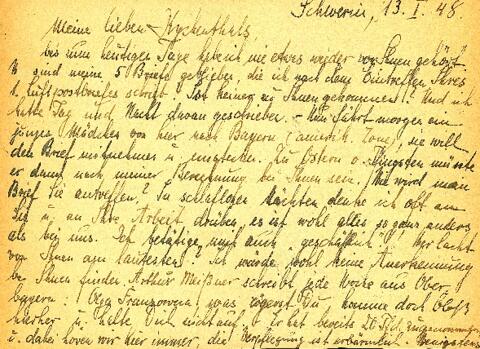 Schwerin, 13. I. 48.
Meine lieben
bis zum heutigen Tage habe ich nie etwas wieder von Ihnen gehört.
Wo sind meine 5 Briefe geblieben, die ich nach dem Eintreffen Ihres
1. Luftpostbriefes schrieb? Ist keiner zu Ihnen gekommen? Und ich
hatte Tag und Nacht daran geschrieben. – Nun fährt morgen ein
junges Mädchen von hier nach Bayern (amerik. Zone), sie will
den Brief mitnehmen u. einstecken. Zu Ostern o. Pfingsten müsste
er dann nach meiner Berechnung bei Ihnen sein. Wie wird mein
Brief Sie antreffen? In schlaflosen Nächten denke ich oft an
Sie u. an Ihre Arbeit drüben, es ist wohl alles so ganz anders
als bei uns. Ich betätige mich auch "geschäftlich"! Wer lacht
von Ihnen am lautesten? Ich würde wohl keine Anerkennung
bei Ihnen finden. Arthur Meißner schreibt jede Woche aus Ober-
bayern: was zögerst Du, komme doch bloß
und halte Dich nicht auf. Er hat bereits 20 Pfd. zugenommen
u. dabei hören wir hier immer, die Verpflegung ist erbärmlich. Wenigstens